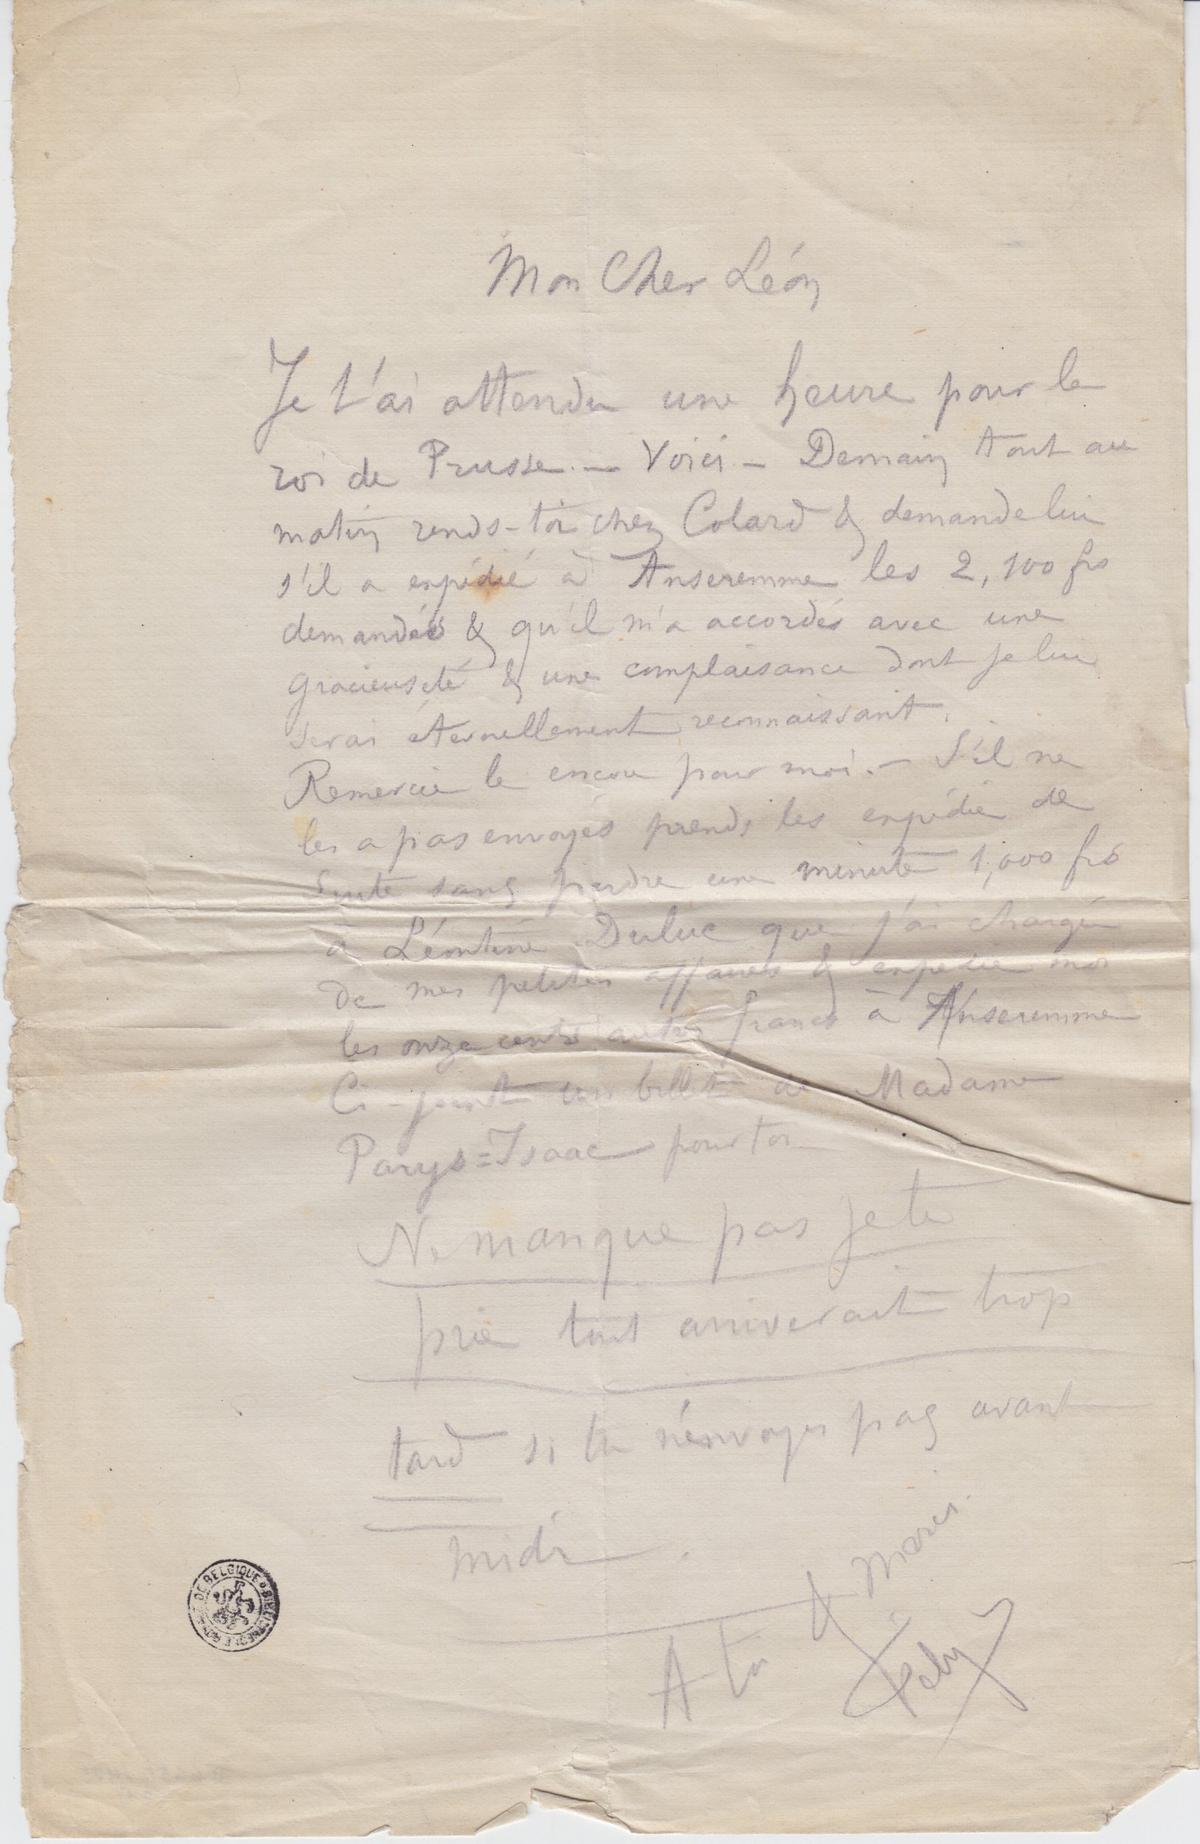 Mon Cher Léon
Je t'ai attendu une heure pour le
roi de Prusse. — Voici — Demain tout au
matin rends-toi chez Colard & demande lui
s'il a expédié à Anseremme les 2,100 frs
demandés & qu'il m'a accordés avec une
gracieuseté & une complaisance dont je lui
serai éternellement reconnaissant.
Remercie le encore pour moi. — S'il ne
les a pas envoyés prends les expédie de
suite sans perdre une minute 1,000 frs
à Léontine Duluc que j'ai chargée
de mes petites affaires & expédie moi
les onze cents autres francs à Anseremme
Ci-joint un billet de Madame
Parys=Isaac pour toi
Ne manque pas je te
prie tout arriverait trop
tard si tu n'envoyes pas avant
midi.
A toi & merci
Fély
BIBLIOTHEQUE ROYALE DE BELGIQUE